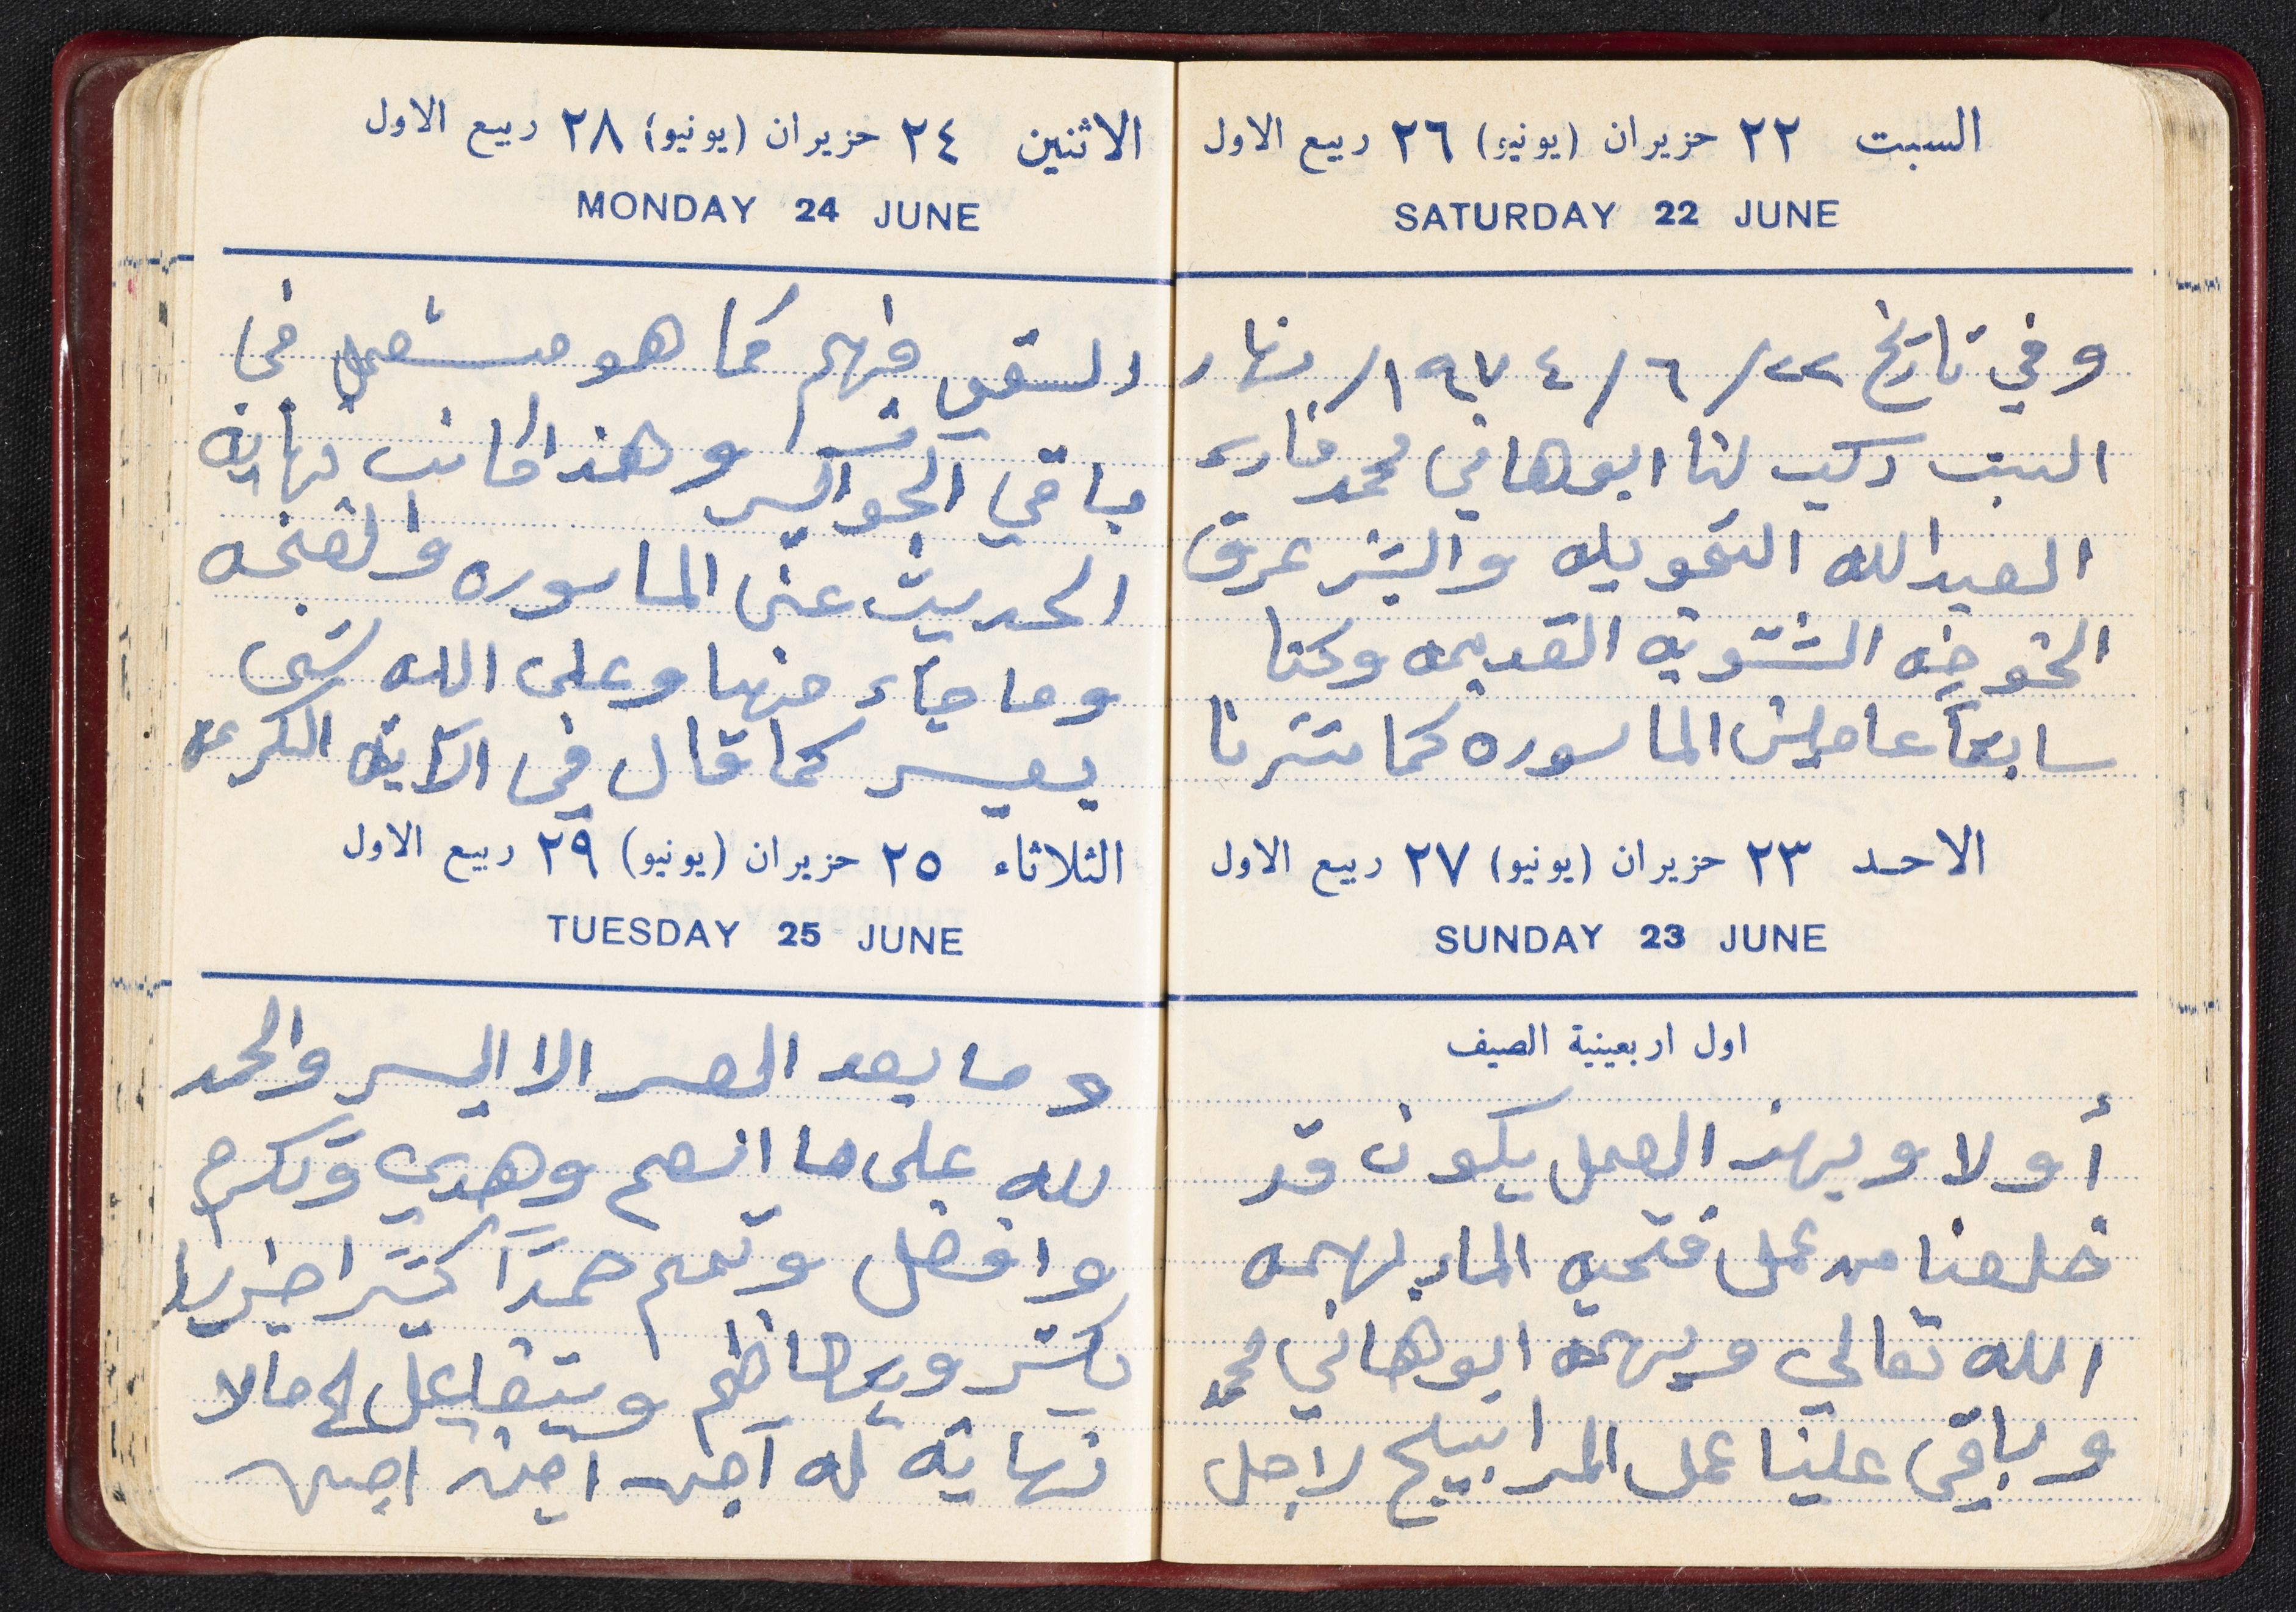 السبت ٢٢ حزيران (يونيو) ٢٦ ربيع الاول
SATURDAY 22 JUNE
وفي تاريخ ٢٢/ ٦/ ١٩٧٤/ نهار
السبت ركب لنا ابوهاني محمد
العبدالله التحويله والبئر عرق
الخوخه الشتويه القديمه وكنا
سابقاً عاملين الماسوره كما
الاحد ٢٣ حزيران (يونيو) ٢٧ ربيع الاول
SUNDAY 23 JUNE
اول اربعينية الصيف
أولا وبهذ العمل يكون قد
خلصنا من عمل فتحيه الماء بهمه
الله تعالى وبهمة ابوهاني محمد
وباقي علينا عمل المرابيح لاجل
الاثنين ٢٤ حزيران (يونيو) ٢٨ ربيع الاول
MONDAY 24 JUNE
السقي فيهم كما هو مستعمل في
باقي الحواكير وهذا كانت نهاية
الحديث عن الماسوره والفتحه
وما جاء منها وعلى الله شيء
يعسر كما قال في الآيه الكريمة
الثلاثاء ٢٥ حزيران (يونيو) ٢٩ ربيع الاول
TUESDAY 25 JUNE
وما بعد العسر الا اليسر والحمد
لله على ما انعم وهدى وتكرم
وافضل وتمم حمداً كثيراً
يكثر ويتعاظم ويتفاعل مالا
نهاية له آمين امين امين